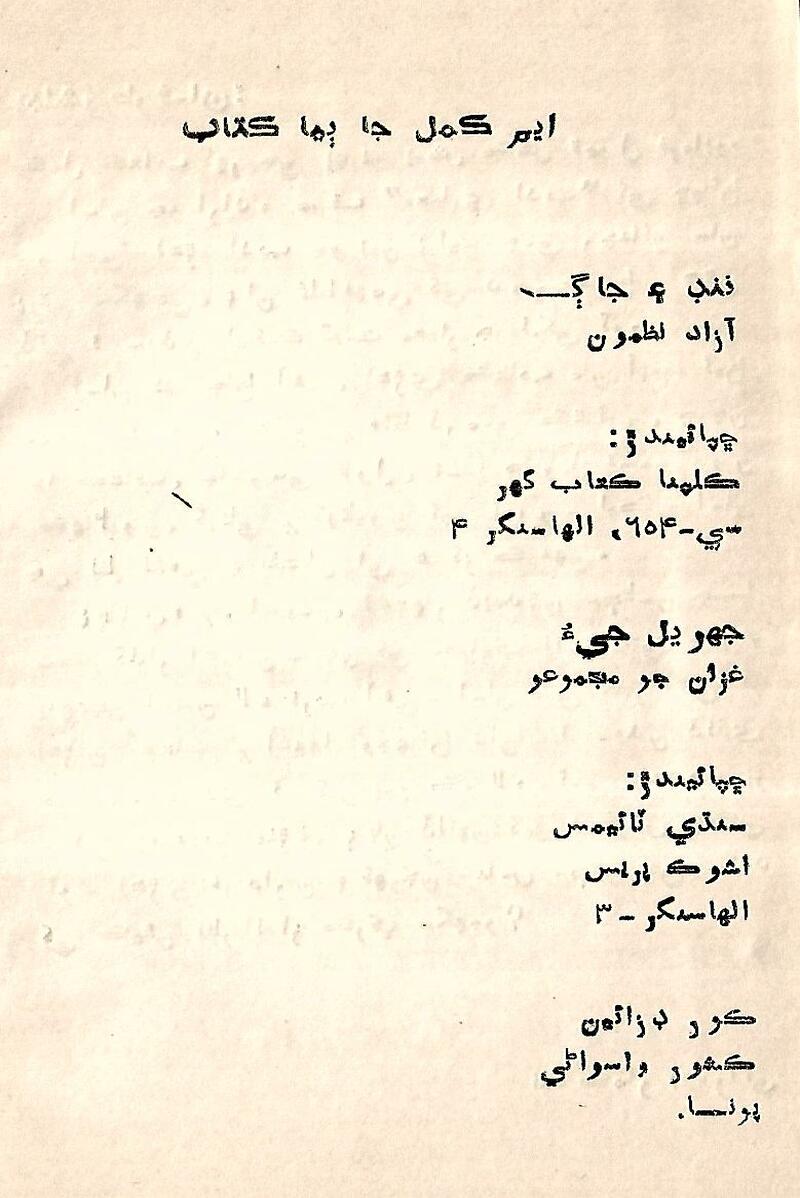 ايم ڪمل جا ٻيا ڪتاب
ننڊ ۽ جاڳ
آزاد نظمون
ڇپائيندڙ:
ڪلپنا ڪتاب گهر
سي-۶۵۴، الهاسنگر ۴
جهو يل جيءُ
غزلن جو مجموعو
ڇپائيندڙ:
سنڌي ٽائيمس
اشوڪ پريس
الهاسنگر-۳
ڪور ڊزائين
ڪشور واسواڻي
پونا.